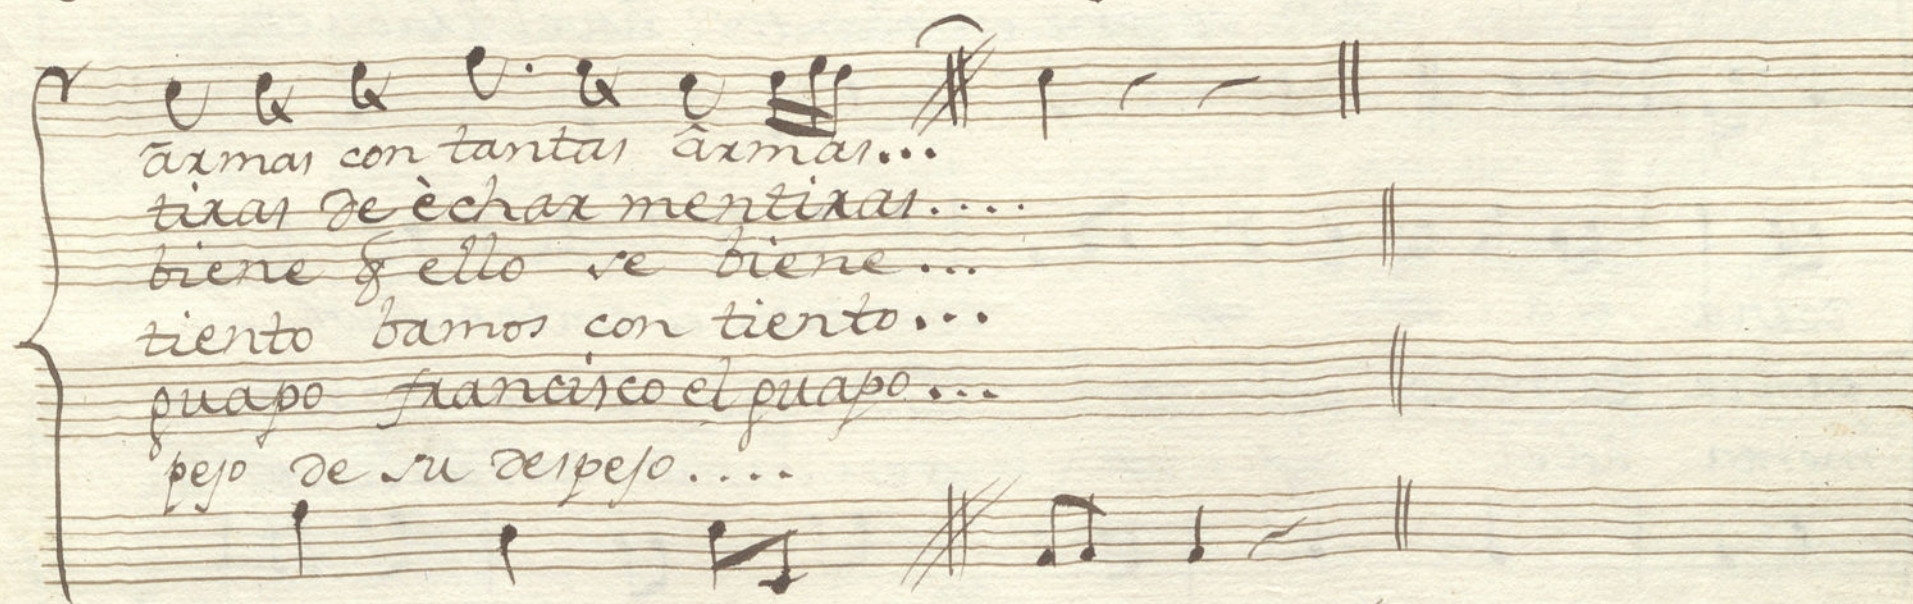 ārmas con tantas ârmas...
tiras de èchar mentiras....
biene q̃ ello se biene...
tiento bamos con tiento...
guapo francisco el guapo...
pejo de su despejo....